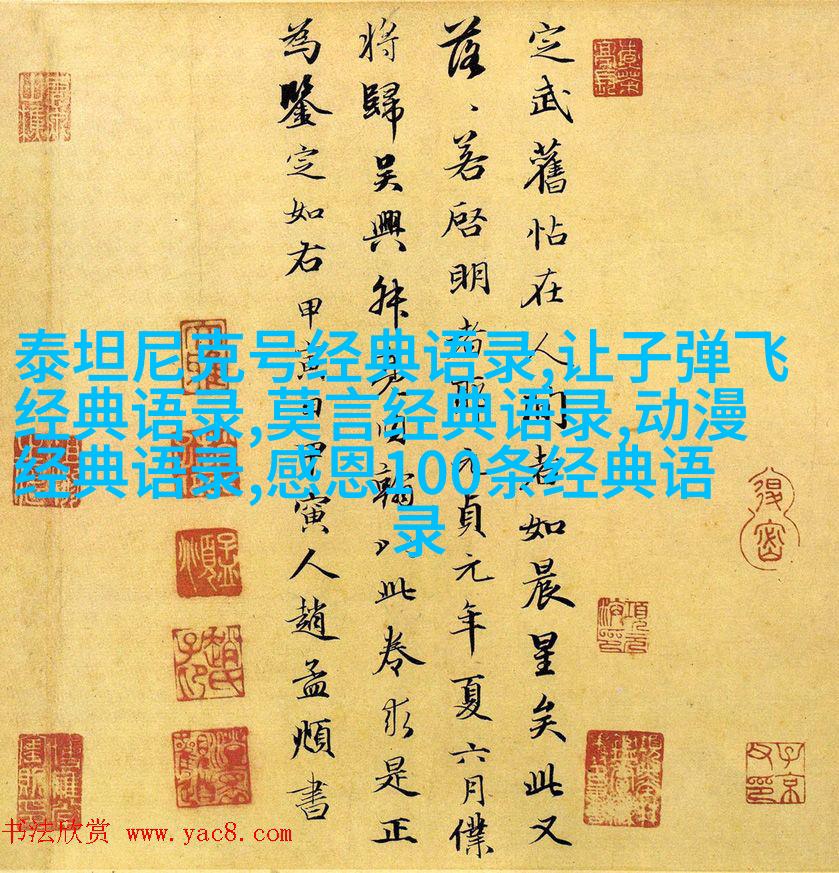 定武舊帖在人間者如晨星矣此又
落、若啓明者耶元貞元年夏六月僕
将歸吴興叔亮内翰以此卷求是正
為鑒定如右甲寅日甲寅人趙孟頫書
泰坦尼克号经典语录,让子弹飞
经典语录,莫言经典语录,动漫
经典语录,感恩100条经典语
录
书法欣赏 www.yac8.com